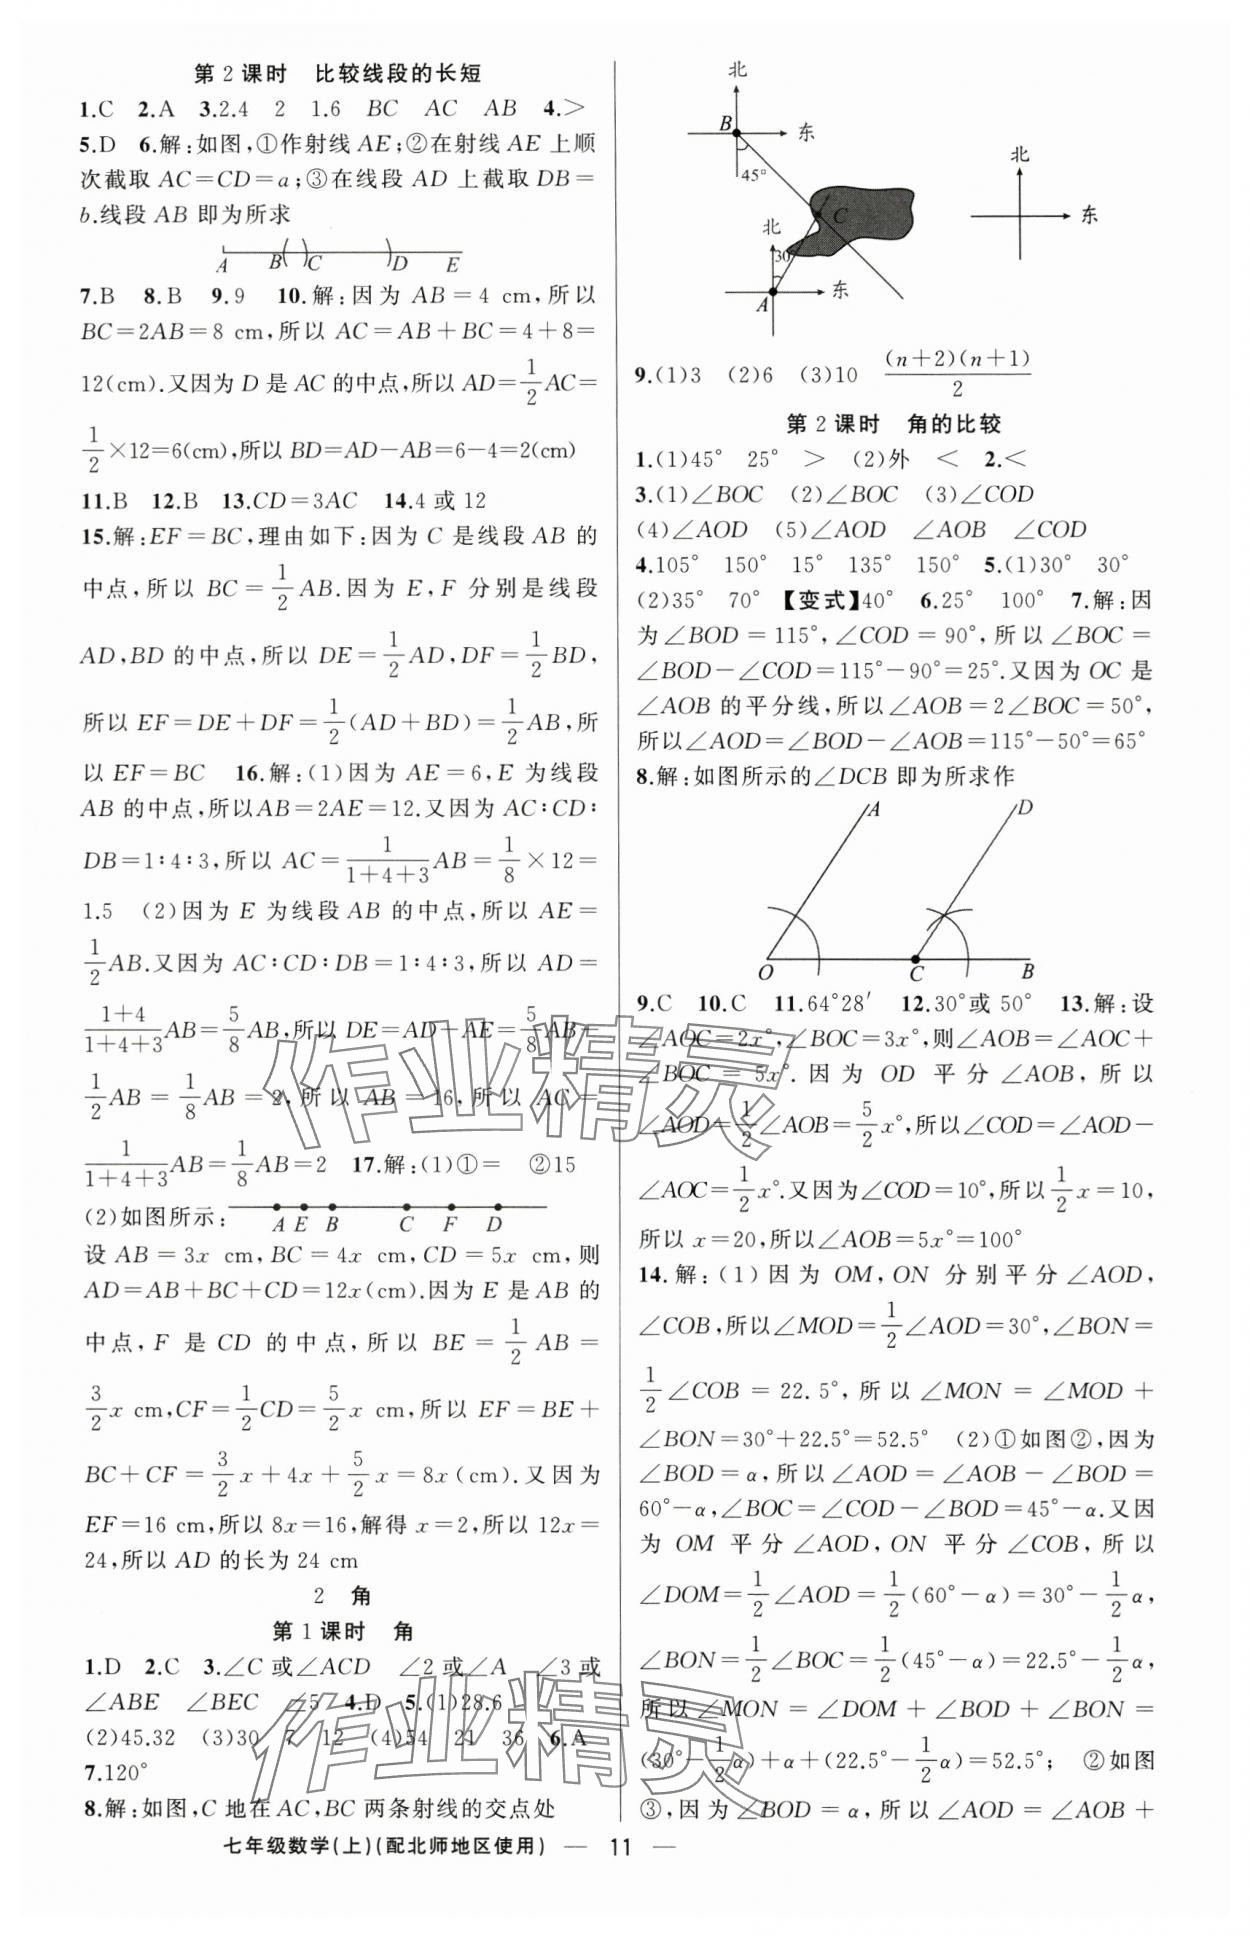 第2课时　比较线段的长短
1.C　2.A　3.2.4　2　1.6　BC　AC　AB　4.>
5.D　6.解:如图,①作射线AE;②在射线AE上顺
次截取AC=CD=a;③在线段AD上截取DB=
b.线段AB即为所求
A　B　C　D　E
7.B　8.B　9.9　10.解:因为AB=4 cm,所以
BC=2AB=8 cm,所以AC=AB+BC=4+8=
12(cm).又因为D是AC的中点,所以AD=1/2AC=
1/2×12=6(cm),所以BD=AD-AB=6-4=2(cm)
11.B　12.B　13.CD=3AC　14.4或12
15.解:EF=BC,理由如下:因为C是线段AB的
中点,所以BC=1/2AB.因为E,F分别是线段
AD,BD的中点,所以DE=1/2AD,DF=1/2BD,
所以EF=DE+DF=1/2(AD+BD)=1/2AB,所
以EF=BC　16.解:(1)因为AE=6,E为线段
AB的中点,所以AB=2AE=12.又因为AC∶CD∶
DB=1∶4∶3,所以AC=1/(1+4+3)AB=1/8×12=
1.5　(2)因为E为线段AB的中点,所以AE=
1/2AB.又因为AC∶CD∶DB=1∶4∶3,所以AD=
(1+4)/(1+4+3)AB=5/8AB,所以DE=AD-AE=5/8AB-
1/2AB=1/8AB=2,所以AB=16,所以AC=
1/(1+4+3)AB=1/8AB=2　17.解:(1)①=　②15
(2)如图所示:
A　E　B　C　F　D
设AB=3x cm,BC=4x cm,CD=5x cm,则
AD=AB+BC+CD=12x(cm).因为E是AB的
中点,F是CD的中点,所以BE=1/2AB=
3/2x cm,CF=1/2CD=5/2x cm,所以EF=BE+
BC+CF=3/2x+4x+5/2x=8x(cm).又因为
EF=16 cm,所以8x=16,解得x=2,所以12x=
24,所以AD的长为24 cm
2　角
第1课时　角
1.D　2.C　3.∠C或∠ACD　∠2或∠A　∠3或
∠ABE　∠BEC　∠5　4.D　5.(1)28.6
(2)45.32　(3)30　7　12　(4)54　21　36　6.A
7.120°
8.解:如图,C地在AC,BC两条射线的交点处
北
B
东
45°
C
北
30°
A
东
北
东
9.(1)3　(2)6　(3)10　(n+2)(n+1)/2
第2课时　角的比较
1.(1)45°　25°　>　(2)外　<　2.<
3.(1)∠BOC　(2)∠BOC　(3)∠COD
(4)∠AOD　(5)∠AOD　∠AOB　∠COD
4.105°　150°　15°　135°　150°　5.(1)30°　30°
(2)35°　70°　【变式】40°　6.25°　100°　7.解:因
为∠BOD=115°,∠COD=90°,所以∠BOC=
∠BOD-∠COD=115°-90°=25°.又因为OC是
∠AOB的平分线,所以∠AOB=2∠BOC=50°,
所以∠AOD=∠BOD-∠AOB=115°-50°=65°
8.解:如图所示的∠DCB即为所求作
A　D
O　C　B
9.C　10.C　11.64°28′　12.30°或50°　13.解:设
∠AOC=2x°,∠BOC=3x°,则∠AOB=∠AOC+
∠BOC=5x°.因为OD平分∠AOB,所以
∠AOD=1/2∠AOB=5/2x°,所以∠COD=∠AOD-
∠AOC=1/2x°.又因为∠COD=10°,所以1/2x=10,
所以x=20,所以∠AOB=5x°=100°
14.解:(1)因为OM,ON分别平分∠AOD,
∠COB,所以∠MOD=1/2∠AOD=30°,∠BON=
1/2∠COB=22.5°,所以∠MON=∠MOD+
∠BON=30°+22.5°=52.5°　(2)①如图②,因为
∠BOD=α,所以∠AOD=∠AOB-∠BOD=
60°-α,∠BOC=∠COD-∠BOD=45°-α.又因
为OM平分∠AOD,ON平分∠COB,所以
∠DOM=1/2∠AOD=1/2(60°-α)=30°-1/2α,
∠BON=1/2∠BOC=1/2(45°-α)=22.5°-1/2α,
所以∠MON=∠DOM+∠BOD+∠BON=
(30°-1/2α)+α+(22.5°-1/2α)=52.5°;　②如图
③,因为∠BOD=α,所以∠AOD=∠AOB+
七年级数学(上)(配北师地区使用)　— 11 —
作业精灵
作业精灵